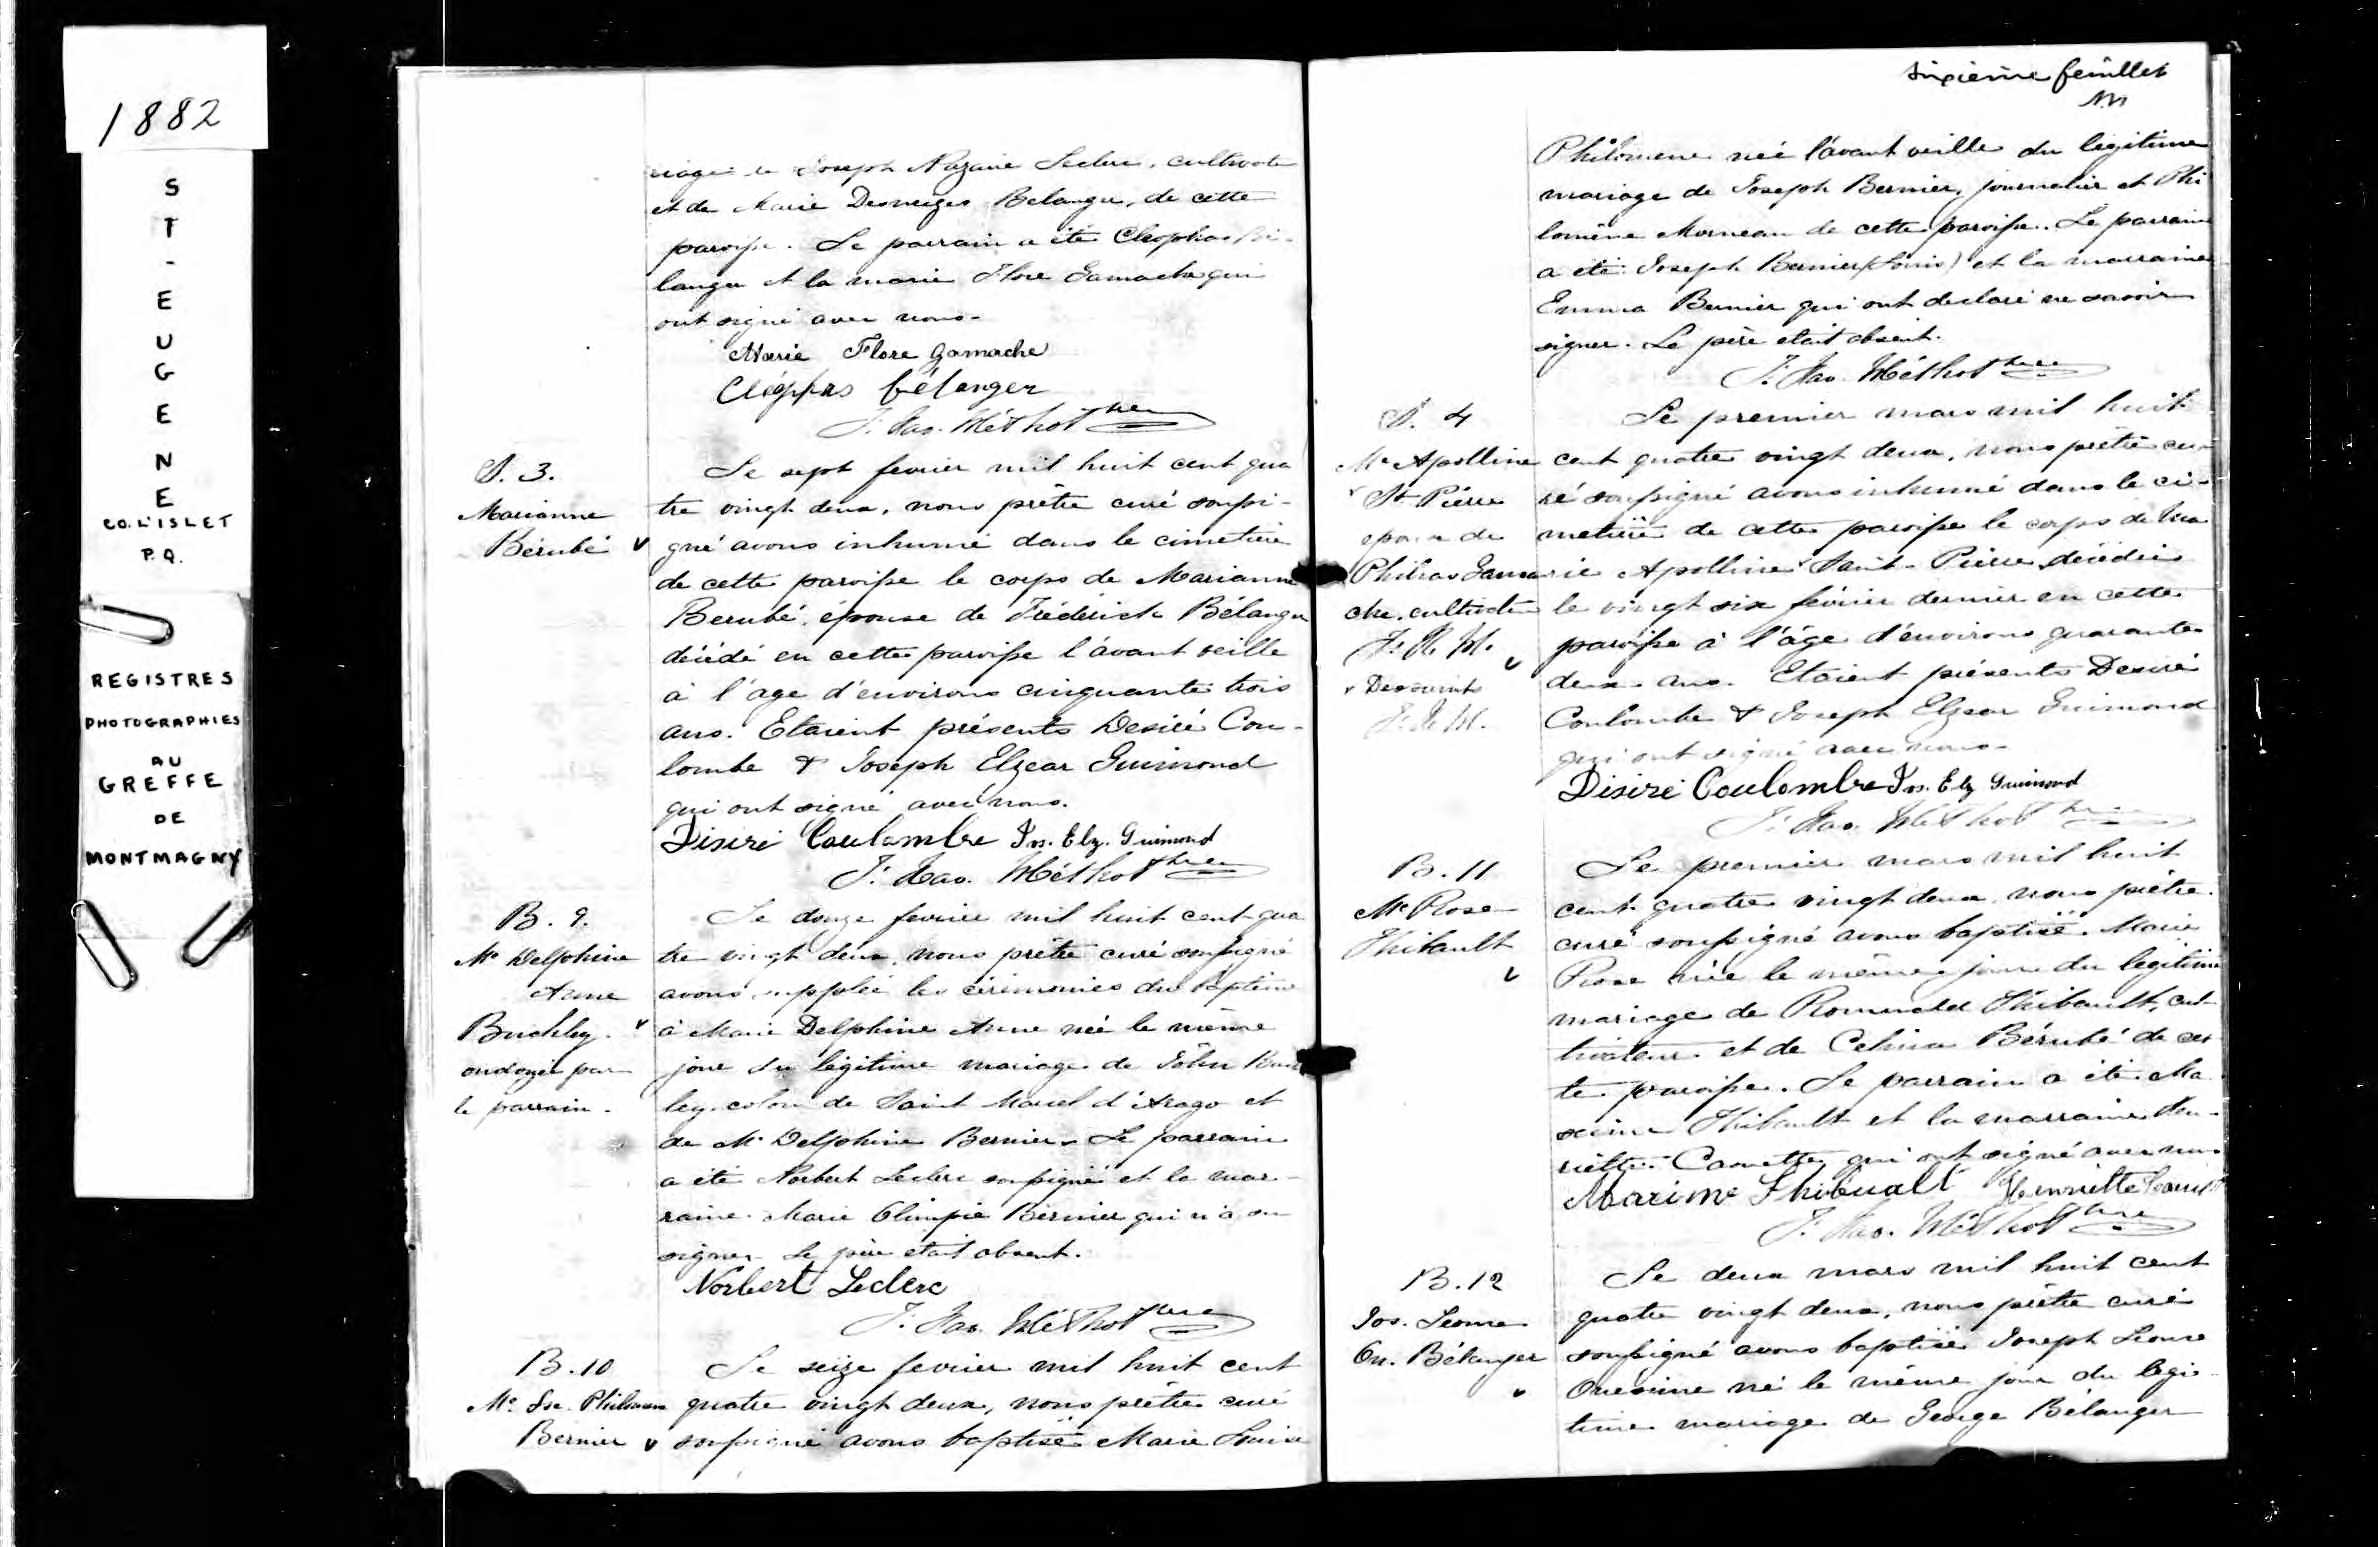 1882
ST-EUGENE
CO. L'ISLET
P.Q.
REGISTRES
PHOTOGRAPHIES
AU
GREFFE
DE
MONTMAGNY
riage de Joseph Nazaire Leclerc, cultivate
et de Marie Desneiges Belanger, de cette
paroisse. Le parrain a été Cleophas Bé-
langer et la marie Flore Gamache qui
ont signé avec nous-
Marie Flore Gamache
Cléophas bélanger
F. Xav. Méthot Ptre
S. 3.
Marianne
Bérubé
Le sept fevrier mil huit cent qua
tre vingt deux, nous prêtre curé soussi-
gné avons inhumé dans le cimetière
de cette paroisse le corps de Marianne
Berubé, épouse de Frédérick Bélanger
décédé en cette paroisse l'avant veille
à l'age d'environs cinquante trois
ans. Etaient présents Desiré Cou-
lombe & Joseph Elzear Guimond
qui ont signé avec nous.
Disiré Coulombe Jos. Elz. Guimond
F. Xav. Méthot Ptre
B. 9.
Me Delphine
Anne
Buckley.
ondoyée par
le parrain.
Le douze fevrier mil huit cent qua
tre vingt deux, nous prêtre curé soussigné
avons suppléé les cérémonies du Bptême
à Marie Delphine Anne née le même
jour du légitime mariage de John Buck
ley colon de Saint Marcel d'Arago et
de Me Delphine Bernier. Le parrain
a été Norbert Leclerc soussigné et la mar-
raine Marie Olimpie Bernier qui n'a su
signer. Le père etait absent.
Norbert Leclerc
F. Xav. Méthot Ptre
B. 10
Me Lse. Philomene
Bernier
Le seize fevrier mil huit cent
quatre vingt deux, nous prêtre curé
soussigné avons baptisé Marie Louise
sixième feuillet
Philomene née l'avant veille du légitime
mariage de Joseph Bernier, journalier et Phi
lomène Morneau de cette paroisse. Le parrain
a été Joseph Bernier (Louis) et la marraine
Emma Bernier qui ont déclaré ne savoir
signer. Le père etait absent.
F. Xav. Méthot Ptre
S. 4
Me Apolline
St Pierre
epouse de
Philias Gama
che, cultivate
F. X. M.
Le premier mars mil huit
cent quatre vingt deux, nous prêtre cu-
ré soussigné avons inhumé dans le ci-
metière de cette paroisse le corps de Ma
rie Apolline Saint-Pierre décédée
le vingt six février dernier en cette
paroisse à l'âge d'environs quarante
deux ans. Etaient présents Desiré
Coulombe & Joseph Elzear Guimond
F. X. M.
qui ont signé avec nous-
Disiré Coulombe Jos. Elz Guimond
F. Xav. Méthot Ptre
B. 11
Me Rose
Thibault
Le premier mars mil huit
cent quatre vingt deux, nous prêtre
curé soussigné avons baptisé Marie
Rose née le même jour du légitime
mariage de Romuald Thibault, cul-
tivateur et de Celina Bérubé de cet
te paroisse. Le parrain a été Ma
xime Thibault et la marraine Hen-
riette Caouette qui ont signé avec nous
Maxime Thibualt Henriette Caouette
F. Xav. Méthot Ptre
B. 12
Jos. Leonce
On. Bélanger
Le deux mars mil huit cent
quatre vingt deux, nous prêtre curé
soussigné avons baptisé Joseph Leonce
Onesime né le même jour du légi-
time mariage de George Bélanger